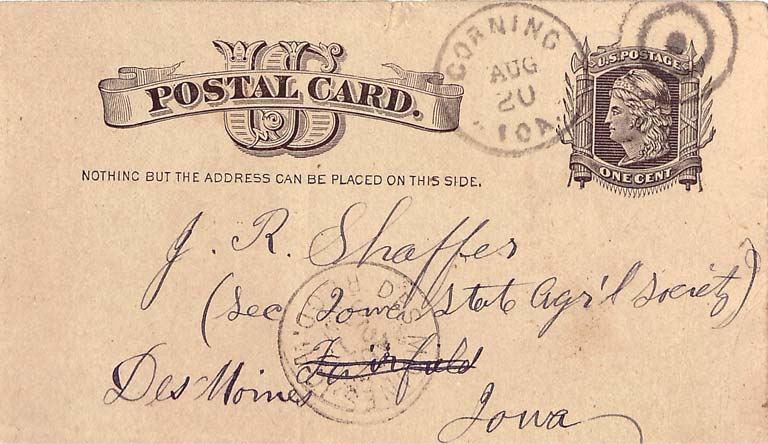 US
POSTAL CARD.
CORNING
AUG
20
IOA.
U.S. POSTAGE
ONE CENT
NOTHING BUT THE ADDRESS CAN BE PLACED ON THIS SIDE.
J. R. Shaffer
(Sec Iowa State Agr'l Society)
DES MOINES
REC'D.
Des Moines Fairfield
Iowa